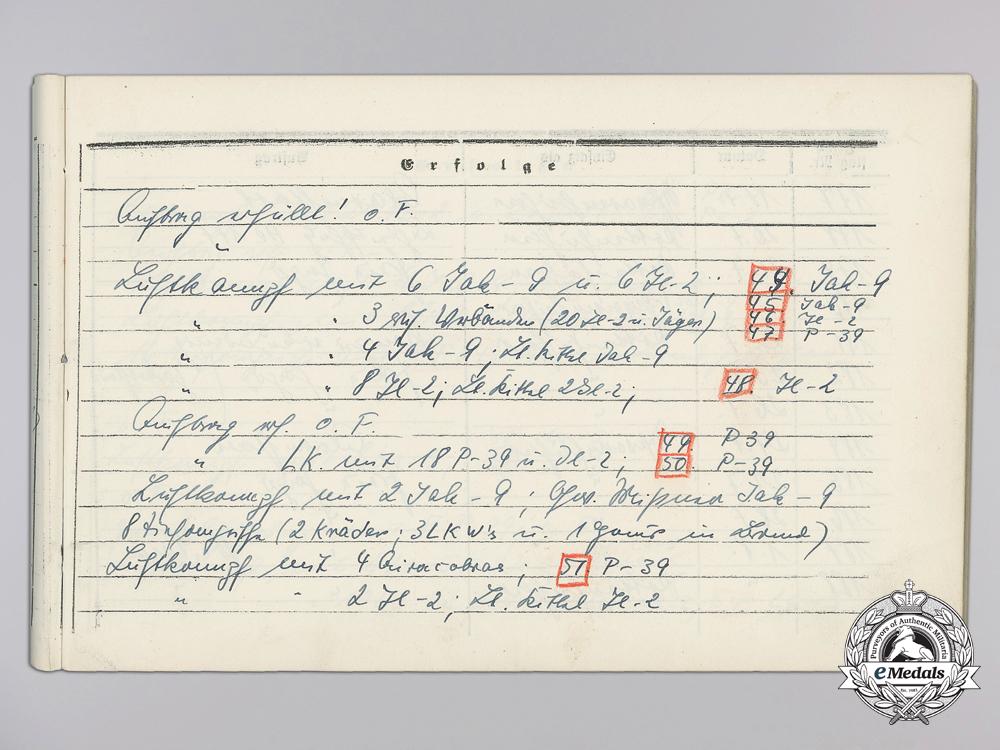 Erfolge
Auftrag erfüllt! o. F.
"
Luftkampf mit 6 Jak-9 u. 6 Jl-2; 44. Jak-9
45 Jak-9
" " 3 Verbänden (20 Jl-2 u. Jäger) 46 Jl-2
47 P-39
" " 4 Jak-9; Lt. Kittel Jak-9
" " 8 Jl-2; Lt. Kittel 2 Jl-2; 48. Jl-2
Auftrag erf. o. F. 49. P-39
" LK. mit 18 P-39 u. Jl-2; 50. P-39
Luftkampf mit 2 Jak-9; Jak-9
8 Tiefangriffe (2 Kräder; 3 LKW's u. 1 in Brand)
Luftkampf mit 4 Airacobras; 51. P-39
" " 2 Jl-2; Lt. Kittel Jl-2
Purveyors of Authentic Militaria
eMedals